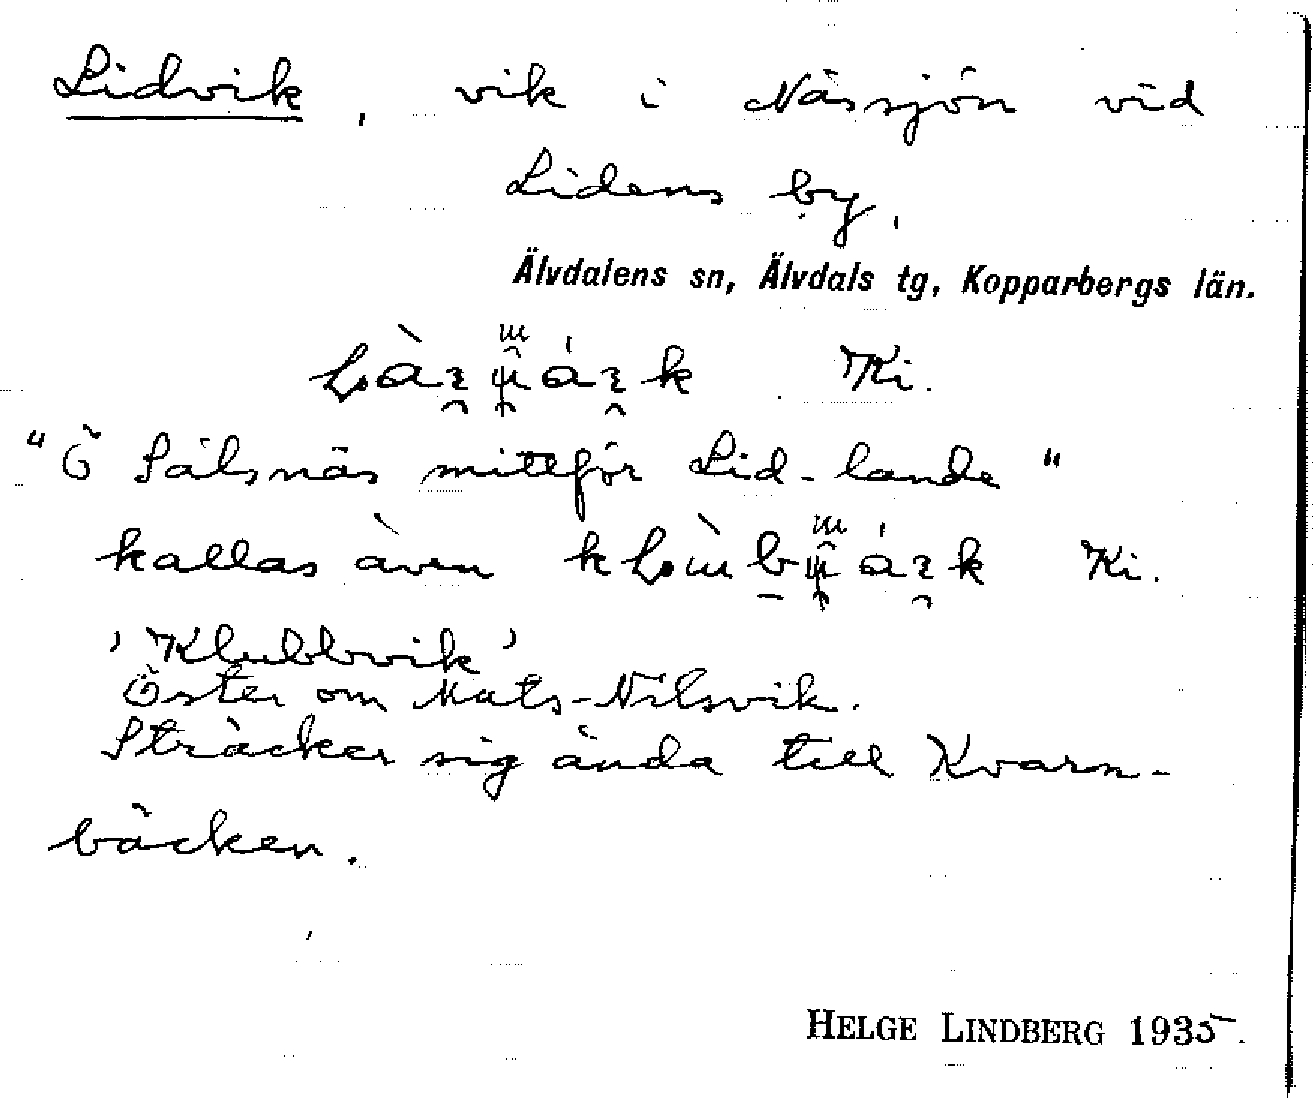 Lidvik, vik i Nässjön vid
Lidens by.
Älvdalens sn, Älvdals tg, Kopparbergs län.
Ki.
"Ö Sälsnäs mittför Lid-lande"
kallas även Ki.
'Klubbvik'
Öster om Mats-Nilsvik.
Sträcker sig ända till Kvarn-
bäcken.
HELGE LINDBERG 1935.